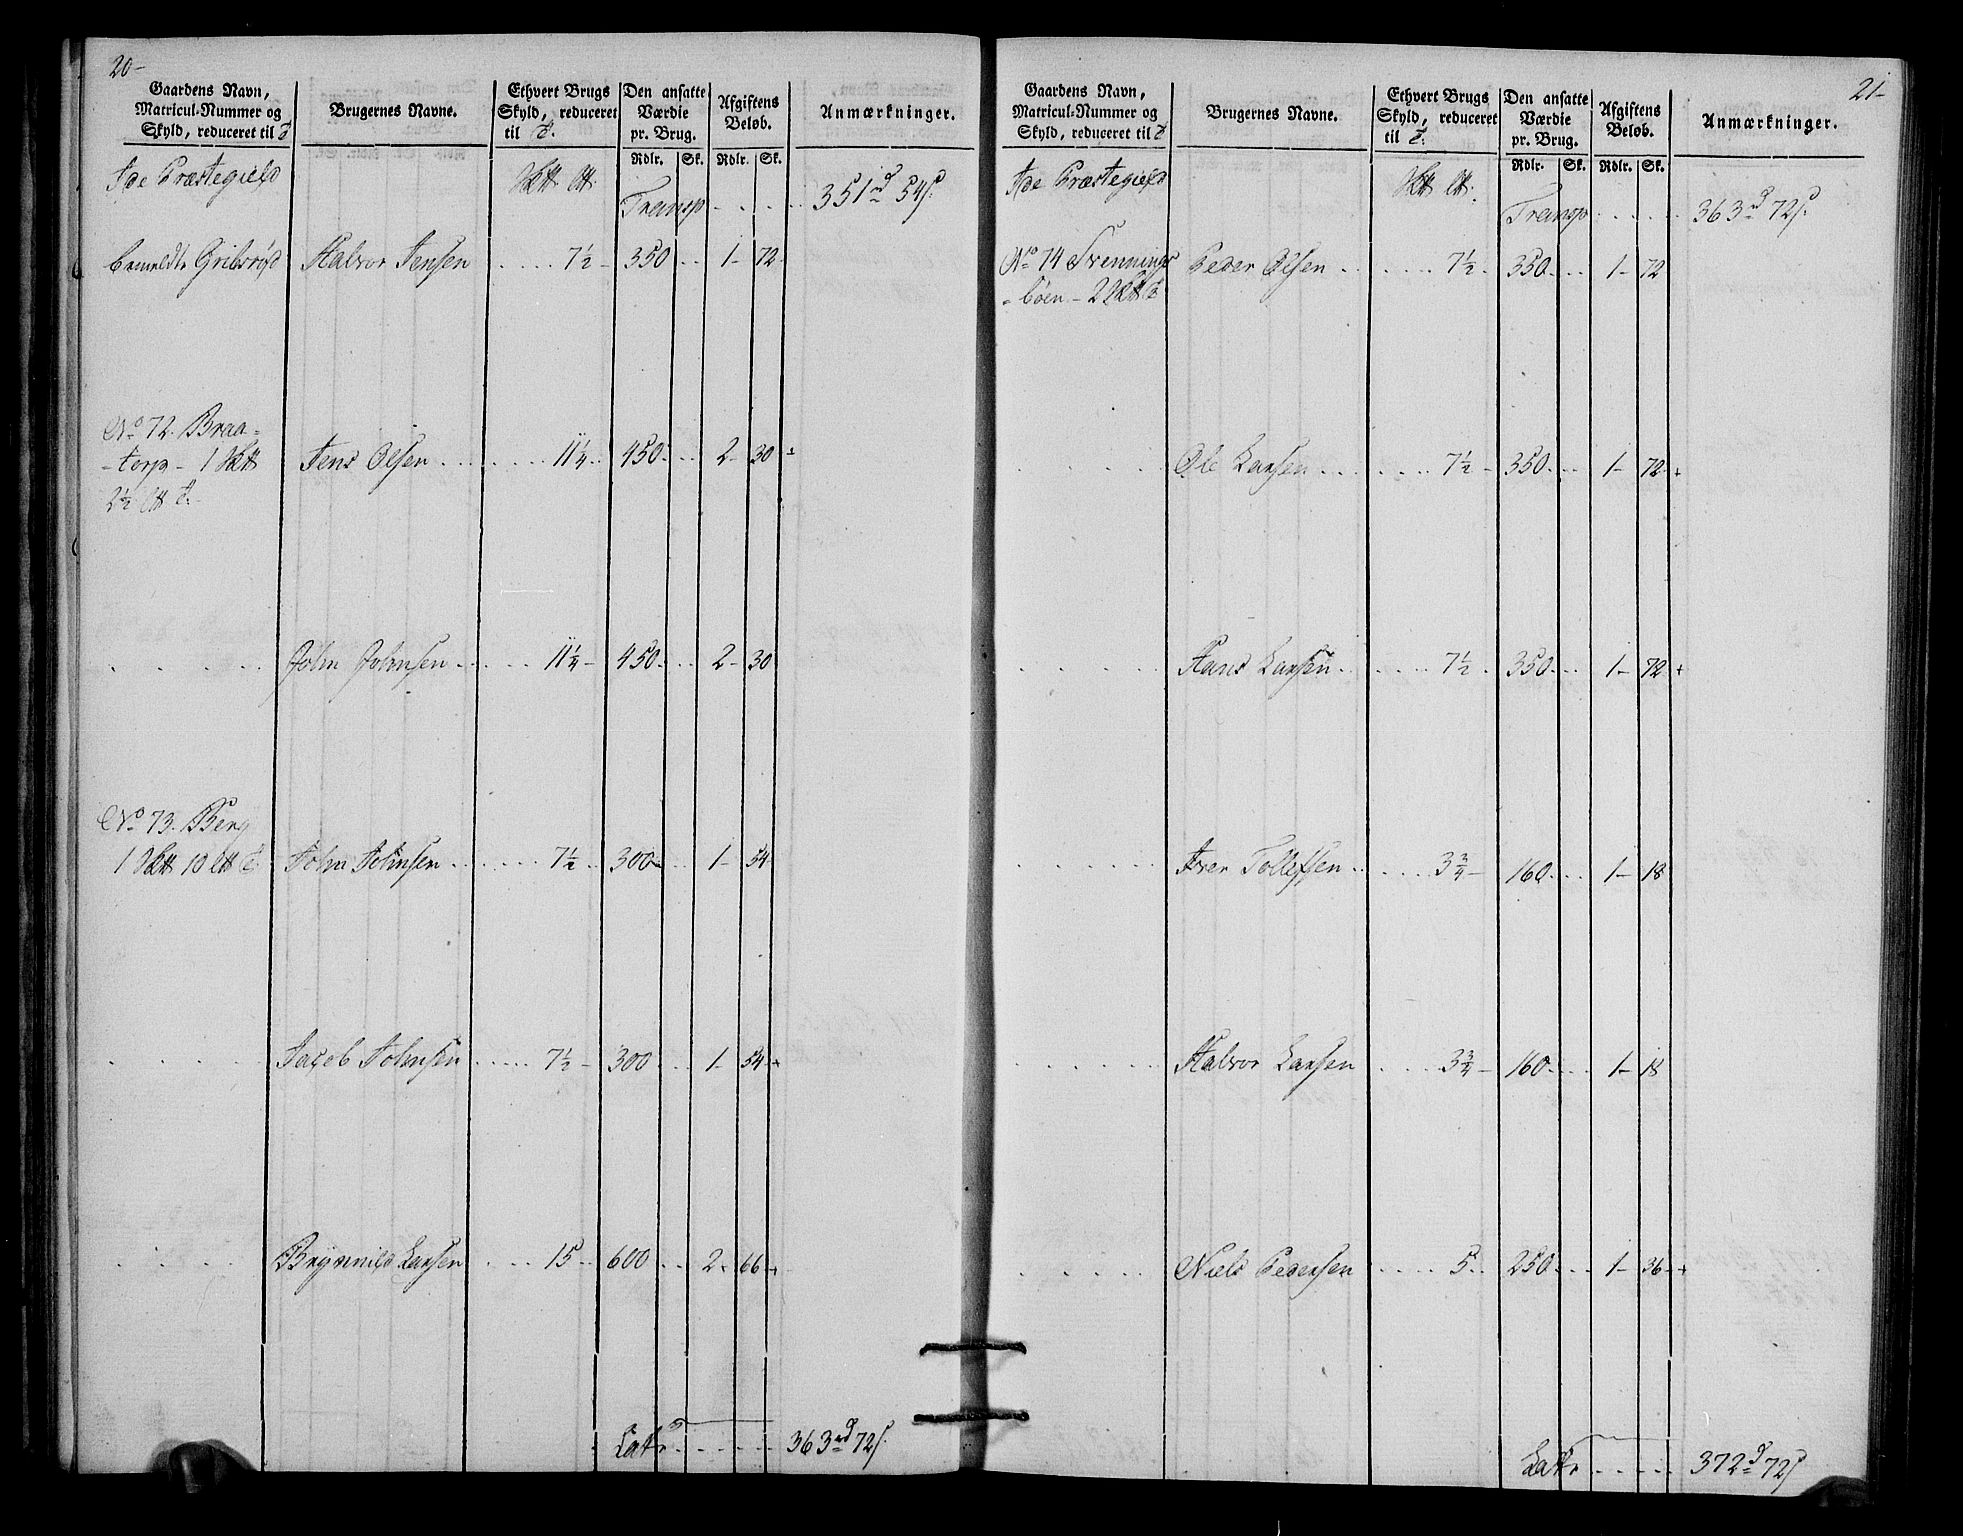 20-
Gaardens Navn, Matricul-Nummer og Skyld, reduceret til T
Brugernes Navne.
Ethvert Brugs Skyld, reduceret til T.
Den ansatte Værdie pr. Brug.
Afgiftens Beløb.
Anmærkninger.
Rdlr. Sk. Rdlr. Sk.
Ide Præstegield
Transp . . . . . 351 rd 54 s.
bemeldte Gribsrød Halvor Jensen . . . . 7½ - 350 . . 1 - 72
No 72. Braa-
-terp - 1 Jens Olsen . . . . . . 11¼ . . 450 . . . 2 - 30
2½
. . . . John Johnsen . . . . . 11¼ - 450 . . . 2 - 30
No 73. Berg
1 10 John Johnsen . . . . . . 7½ . . 300 . . . 1 - 54
. . . . Jacob Johnsen . . . . . 7½ - 300 . . . 1 - 54
. . . . Brynnild Larsen . . . . 15 . . 600 . . . 2 - 66
Latr . . . . . 363 rd 72 s.
21-
Gaardens Navn, Matricul-Nummer og Skyld, reduceret til T
Brugernes Navne.
Ethvert Brugs Skyld, reduceret til T.
Den ansatte Værdie pr. Brug.
Afgiftens Beløb.
Anmærkninger.
Rdlr. Sk. Rdlr. Sk.
Ide Præstegield
Transp . . . . . 363 rd 72 s.
No 74 Svennings Peder Olsen . . . . . . 7½ . 350 . . . 1 - 72
- böen - 2
. . . . Ole Larsen . . . . . . 7½ - 350 . . . 1 - 72
. . . . Hans Larsen . . . . . . 7½ . 350 . . . 1 - 72
. . . . Iver Tollefsen . . . . . 3¾ - 160 . . . 1 - 18
. . . . Halvor Larsen . . . . 3¾ - 160 . . . 1 - 18
. . . . Niels Pedersen . . . . 5 . . 250 . . . 1 - 36
Latr . . . . . 372 rd 72 s